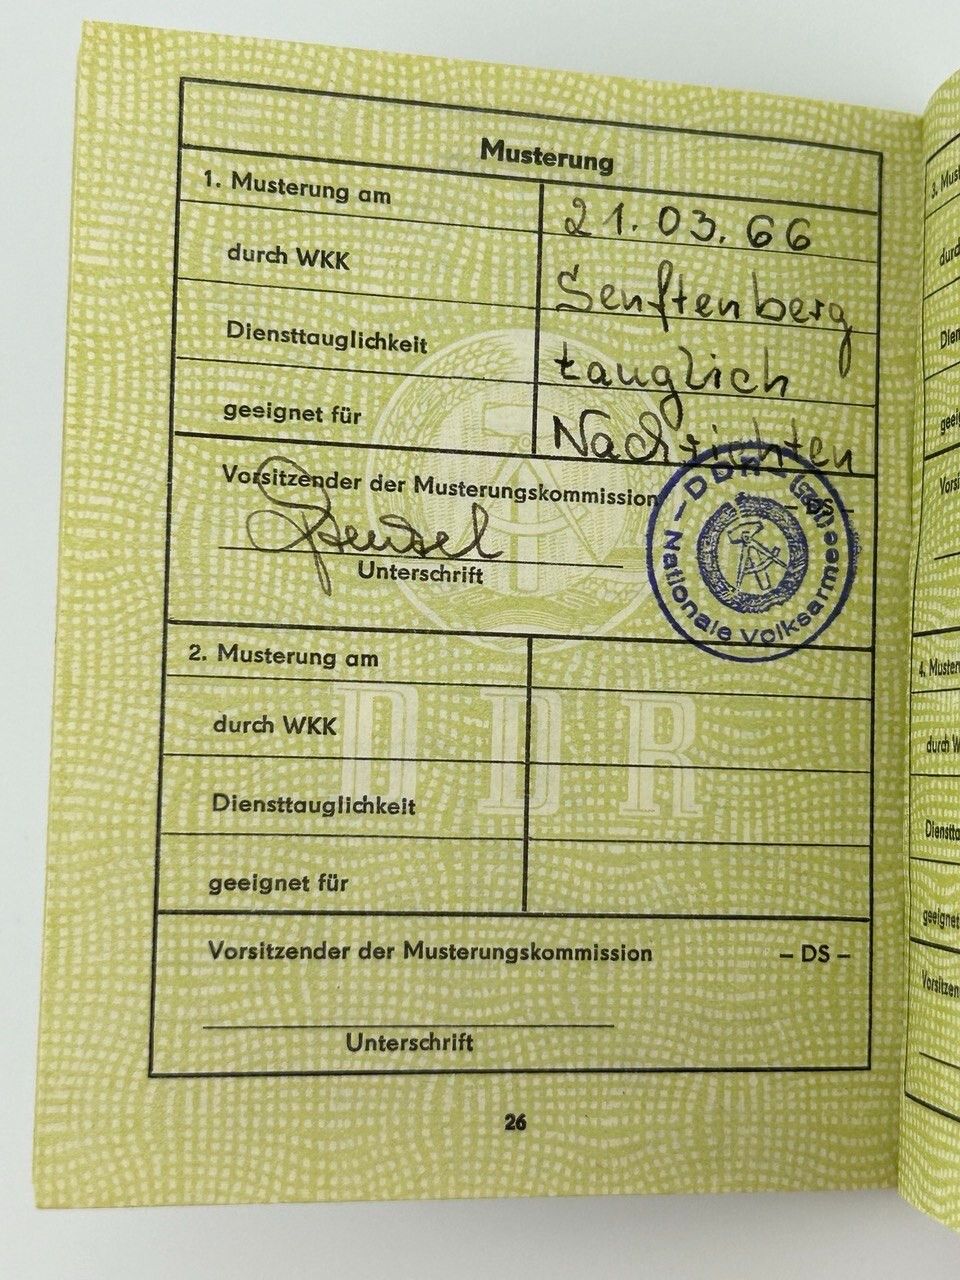 Musterung
1. Musterung am 21.03.66
durch WKK Senftenberg
Diensttauglichkeit tauglich
geeignet für Nachrichten
Vorsitzender der Musterungskommission – DS –
Unterschrift
DDR – Nationale Volksarmee
2. Musterung am
durch WKK
Diensttauglichkeit
geeignet für
DDR
Vorsitzender der Musterungskommission – DS –
Unterschrift
26